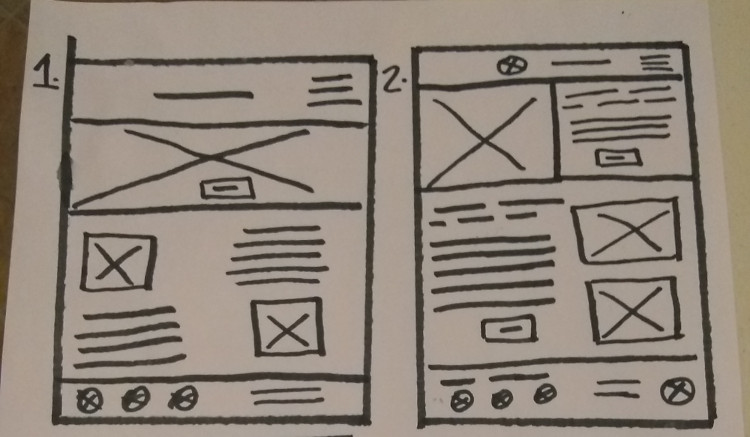 1.
2.